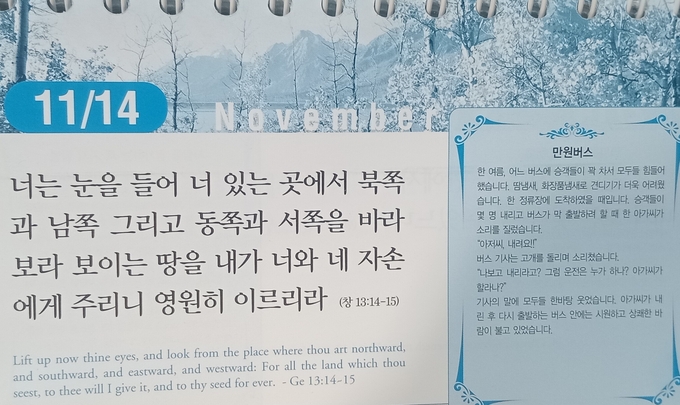 11/14
November
너는 눈을 들어 너 있는 곳에서 북쪽
과 남쪽 그리고 동쪽과 서쪽을 바라
보라 보이는 땅을 내가 너와 네 자손
에게 주리니 영원히 이르리라 (창 13:14-15)
Lift up now thine eyes, and look from the place where thou art northward,
and southward, and eastward, and westward: For all the land which thou
seest, to thee will I give it, and to thy seed for ever. - Ge 13:14-15
만원버스
한 여름, 어느 버스에 승객들이 꽉 차서 모두들 힘들어
했습니다. 땀냄새, 화장품냄새로 견디기가 더욱 어려웠
습니다. 한 정류장에 도착하였을 때입니다. 승객들이
몇 명 내리고 버스가 막 출발하려 할 때 한 아가씨가
소리를 질렀습니다.
"아저씨, 내려요!!"
버스 기사는 고개를 돌리며 소리쳤습니다.
"나보고 내리라고? 그럼 운전은 누가 하나? 아가씨가
할라나?"
기사의 말에 모두들 한바탕 웃었습니다. 아가씨가 내
린 후 다시 출발하는 버스 안에는 시원하고 상쾌한 바
람이 불고 있었습니다.